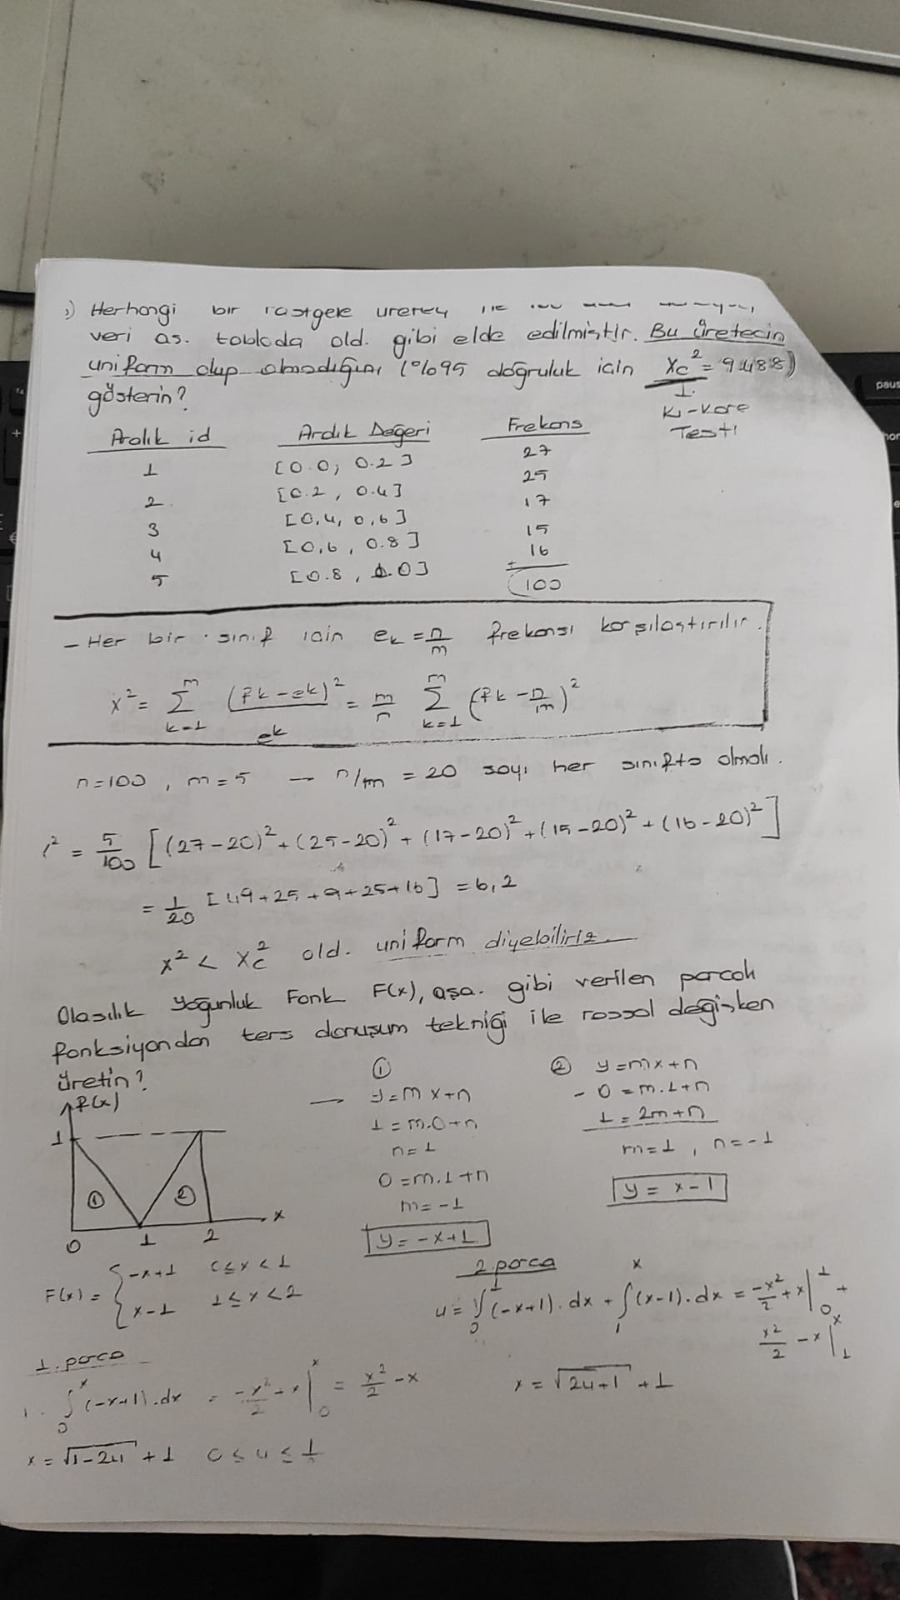 Herhangi bir rastgele
veri aş. tabloda old. gibi elde edilmiştir. Bu üretecin
uniform olup olmadığını (%95 doğruluk için Xc² = 9.488)
gösterin?
Ki-kare
Testi
Aralık id Aralık Değeri Frekans
1 [0.0, 0.2] 27
2 [0.2, 0.4] 25
3 [0,4, 0,6] 17
4 [0,6, 0.8] 15
5 [0.8, 1.0] 16
+
100
- Her bir sınıf için ek = n/m frekansı karşılaştırılır.
x² = Σ (fk-ek)²/ek = m/n Σ (fk - n/m)²
m k=1 m k=1
n=100, m=5 — n/m = 20 sayı her sınıfta olmalı.
² = 5/100 [(27-20)² + (25-20)² + (17-20)² + (15-20)² + (16-20)²]
= 1/20 [49+25+9+25+16] = 6,2
x² < xc² old. uniform diyebiliriz.
Olasılık Yoğunluk Fonk F(x), aşa. gibi verilen parçalı
fonksiyondan ters dönüşüm tekniği ile rassal değişken
üretin?
f(x)
1
① ②
0 1 2 x
①
— y=mx+n
1=m.0+n
n=1
0=m.1+n
m=-1
y=-x+1
② y=mx+n
- 0=m.1+n
1=2m+n
m=1, n=-1
y = x-1
F(x) = { -x+1 0≤x<1
x-1 1≤x<2
2.parça
u = ∫₀¹ (-x+1).dx + ∫₁ˣ (x-1).dx = -x²/2 + x |₀¹ +
x²/2 - x |₁ˣ
x = √2u+1 + 1
1.parça
∫₀ˣ (-x+1).dx = -x²/2 + x |₀ˣ = x²/2 - x
x = √1-2u + 1 0 ≤ u ≤ 1